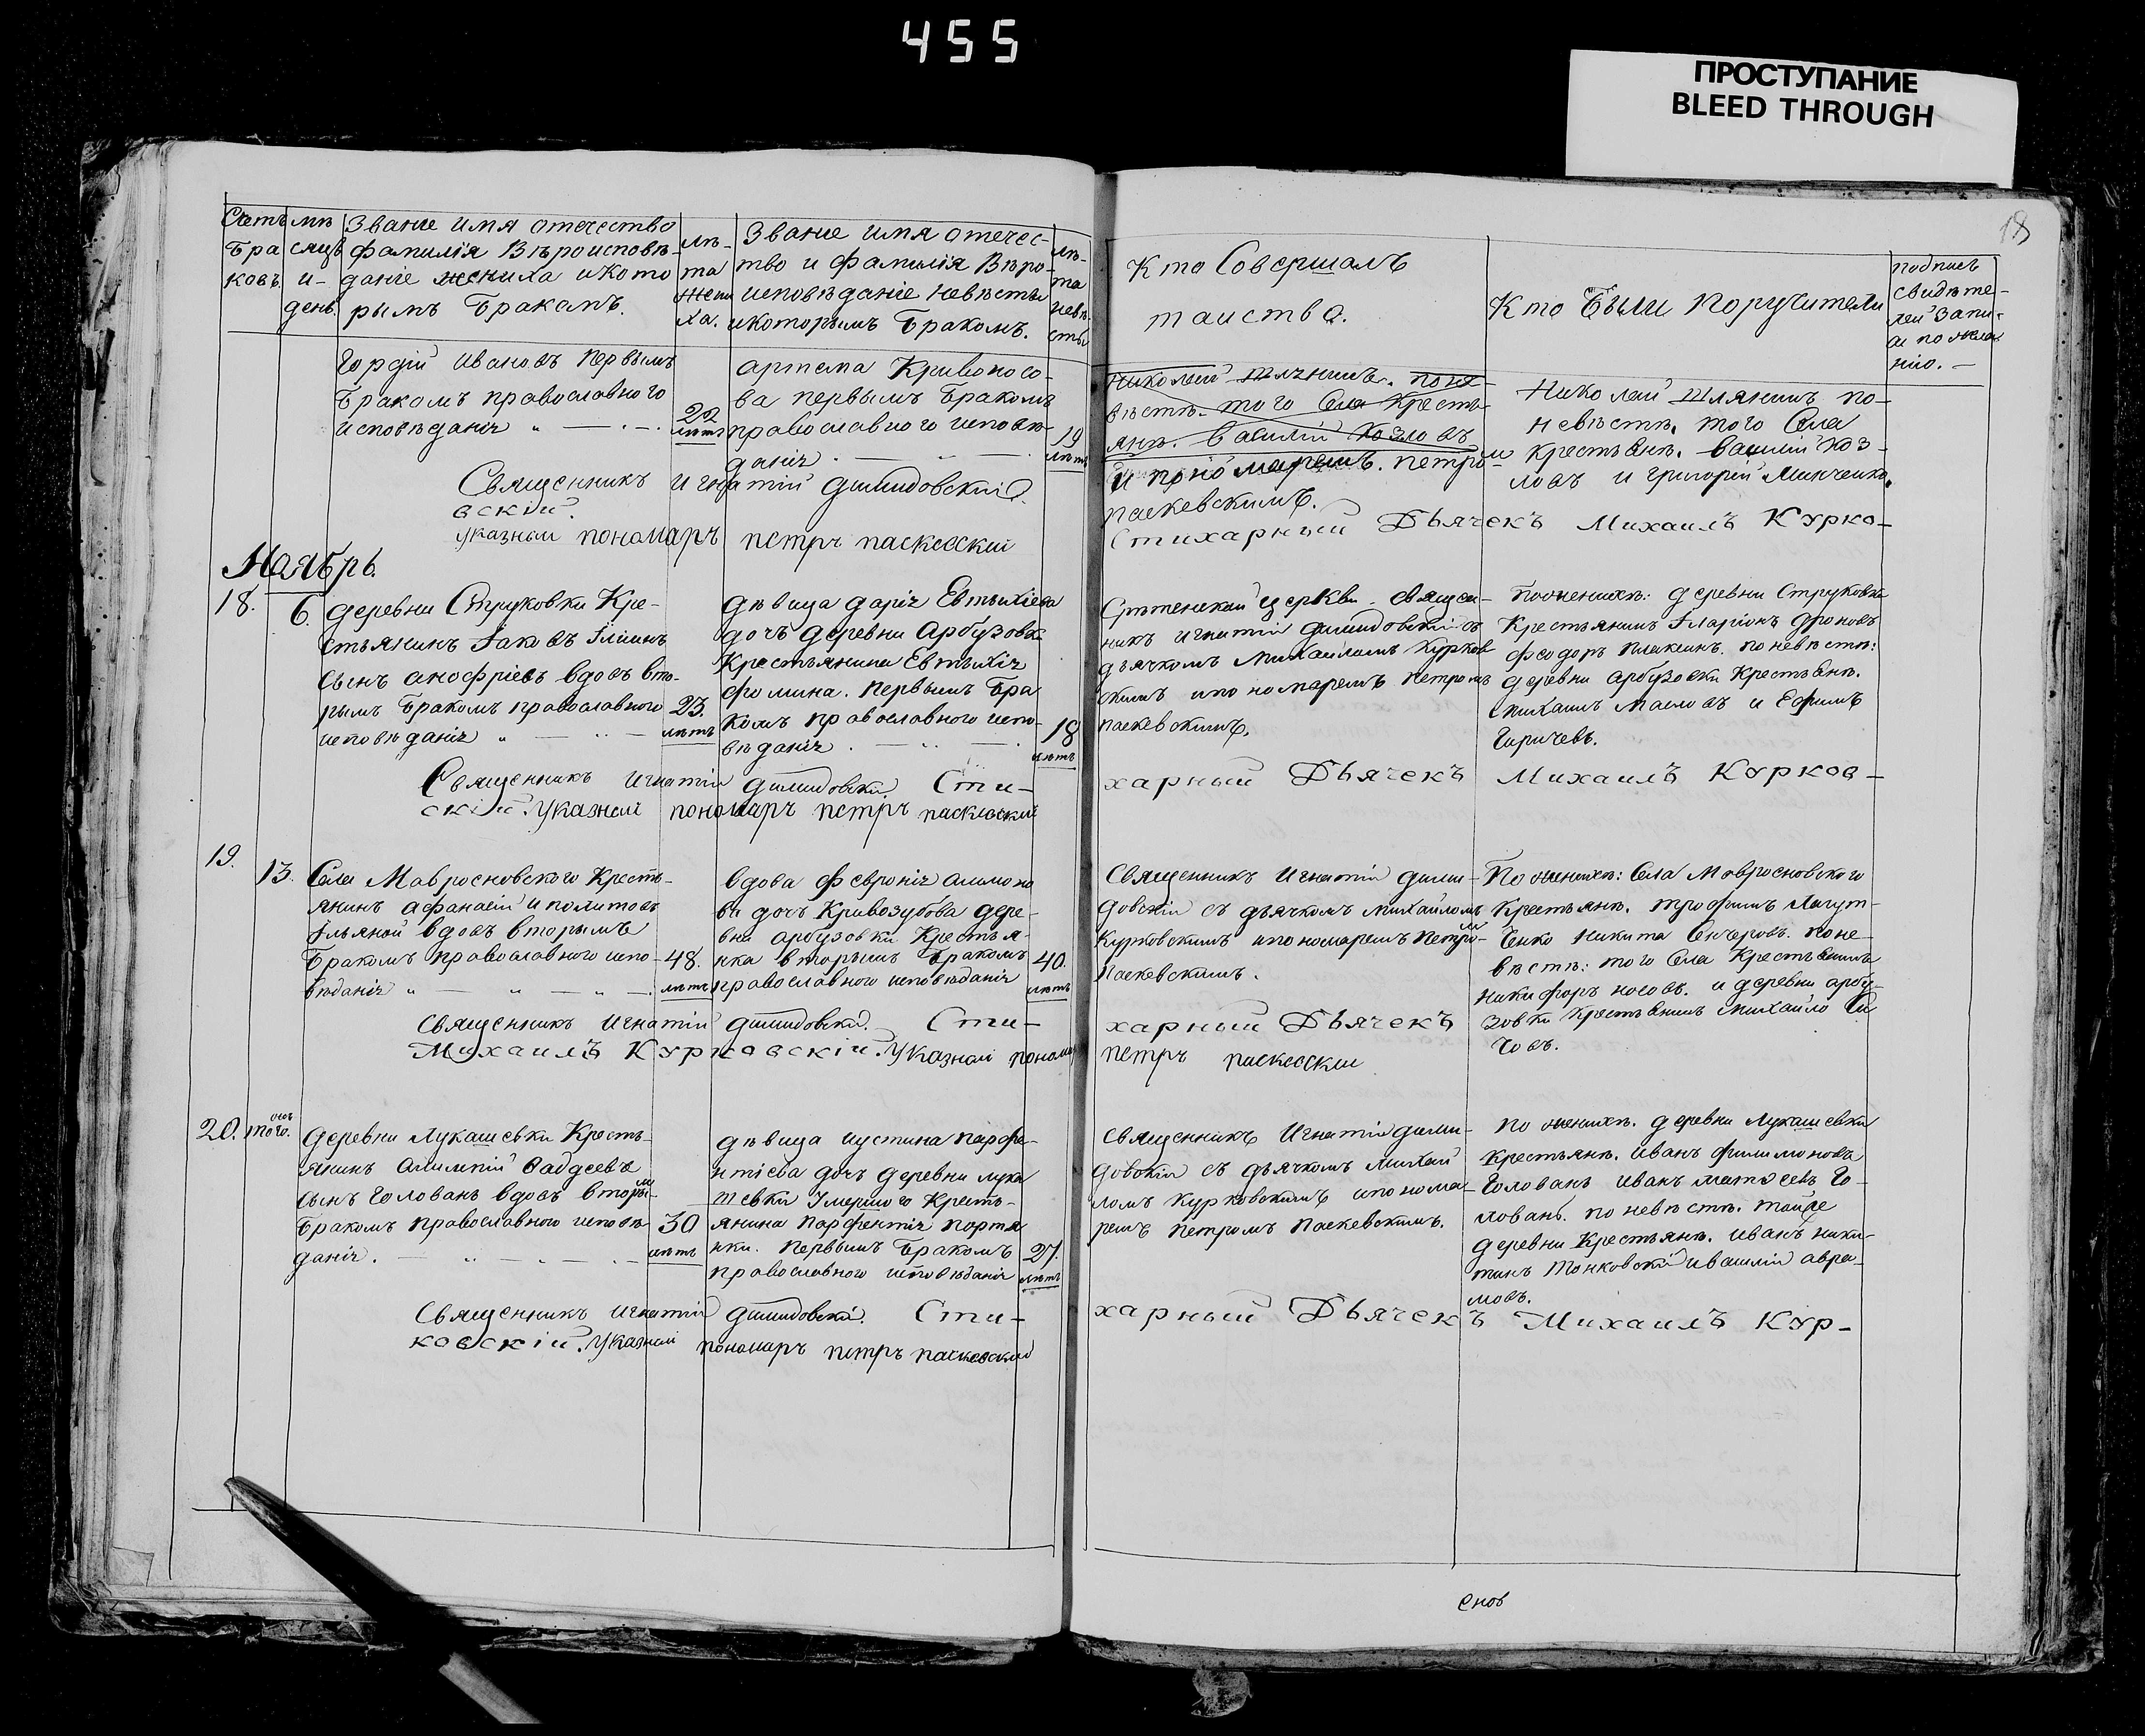 455
ПРОСТУПАНИЕ
BLEED THROUGH
18
Счетъ Бра ковъ.
мѣ сяцъ и день.
Званіе имя отечество
фамилія Вѣроисповѣ-
даніе жениха и кото
рымъ Бракамъ.
лѣ-
та
жени
ха.
Званіе имя отечес-
тво и фамилія Вѣро-
исповѣданіе невѣсты
и которымъ Бракомъ.
лѣ-
та
невѣ
сты
Кто Совершалъ
таиство.
Кто Были поручители
подпись
свидѣте-
лей запи-
си по жела
нію. —
Гордій Ивановъ первымъ
Бракомъ православного
исповѣданія
22
лѣтъ
артема Кривоносо-
ва первымъ Бракомъ
православного исповѣ-
данія
19
лѣтъ
николай шлянинъ. поне-
вѣстѣ. того Села кресть-
янѣ. василій козловъ
и пономаремъ. петромъ
паскевскимъ.
Николай шлянинъ по-
невѣстѣ. того Села
крестьянѣ. василій коз-
ловъ и григорій Минченко.
Священникъ игнатій димидовскій
Стихарный Дьячекъ Михаилъ Курко-
вскій.
указной пономарь петръ паскевский
Ноябрь.
18.
6.
деревни Струковки Кре-
стьянинъ Іаковъ Ілиинъ
сынъ анофріевъ вдовъ вто-
рымъ Бракомъ православного
исповѣданія
23.
лѣтъ
дѣвица дарія Евтыхіева
дочь деревни Арбузовки
Крестьянина Евтыхія
фомина. первымъ Бра
комъ православного испо-
вѣданія
18
лѣтъ
Срѣтенской церкви священ-
никъ игнатій димидовскій съ
дьячкомъ михаиломъ Курков
скимъ и пономаремъ петромъ
паскевскимъ.
По женихѣ: деревни Струковки
Крестьянинъ Іларіонъ дроновъ
феодоръ плаксинъ. по невѣстѣ:
деревни арбузовки Крестьянѣ.
михаилъ масловъ и Ефимъ
Гиричевъ.
Священникъ игнатій димидовскій Сти-
харный Дьячекъ Михаилъ Курков-
скій. указной пономарь петръ паскевский
19.
13.
Села Мавросновского Кресть-
янинъ афанасій иполитовъ
Ільяной вдовъ вторымъ
Бракомъ православного испо-
вѣданія
48.
лѣтъ
вдова февронія алимпо
ва дочь Кривозубова дере-
вни арбузовки Крестья-
нка вторымъ Бракомъ
православного исповѣданія
40.
лѣтъ
Священникъ игнатій дими-
довскій съ дьячкомъ михаиломъ
Курковскимъ и пономаремъ петромъ
паскевскимъ.
По женихѣ: Села Мавросновского
крестьянѣ. трофимъ лагут-
енко никита Сечеровъ. поне-
вѣстѣ: того Села Крестьянинъ
никифоръ носовъ. и деревни арбу-
зовки крестьянинъ михайло
Священникъ игнатій димидовскій. Сти-
харный Дьячекъ
Михаилъ Курковскій. указной пономарь
петръ паскевский
20.
того.
деревни Лукашевки Кресть-
янинъ алимпій Фадеевъ
сынъ Голованъ вдовъ вторымъ
Бракомъ православного исповѣ-
данія.
30
лѣтъ
дѣвица иустина парфе-
нтіева дочь деревни лука
шевки умершого Кресть-
янина парфентія портя
нки. первымъ Бракомъ
православного исповѣданія
27.
лѣтъ
священникъ игнатій дими-
довскій съ дьячкомъ михаи
ломъ курковскимъ и понома-
ремъ петромъ паскевскимъ.
по женихѣ. деревни лукашевки
крестьянѣ. иванъ филимоновъ
Голованъ иванъ матфеевъ го-
лованъ. по невѣстѣ. тойже
деревни крестьянѣ. иванъ ники-
тинъ тонковскій и василій авра-
мовъ.
Священникъ игнатій димидовскій. Сти-
харный Дьячекъ Михаилъ Кур-
ковскій. указной пономарь петръ паскевский